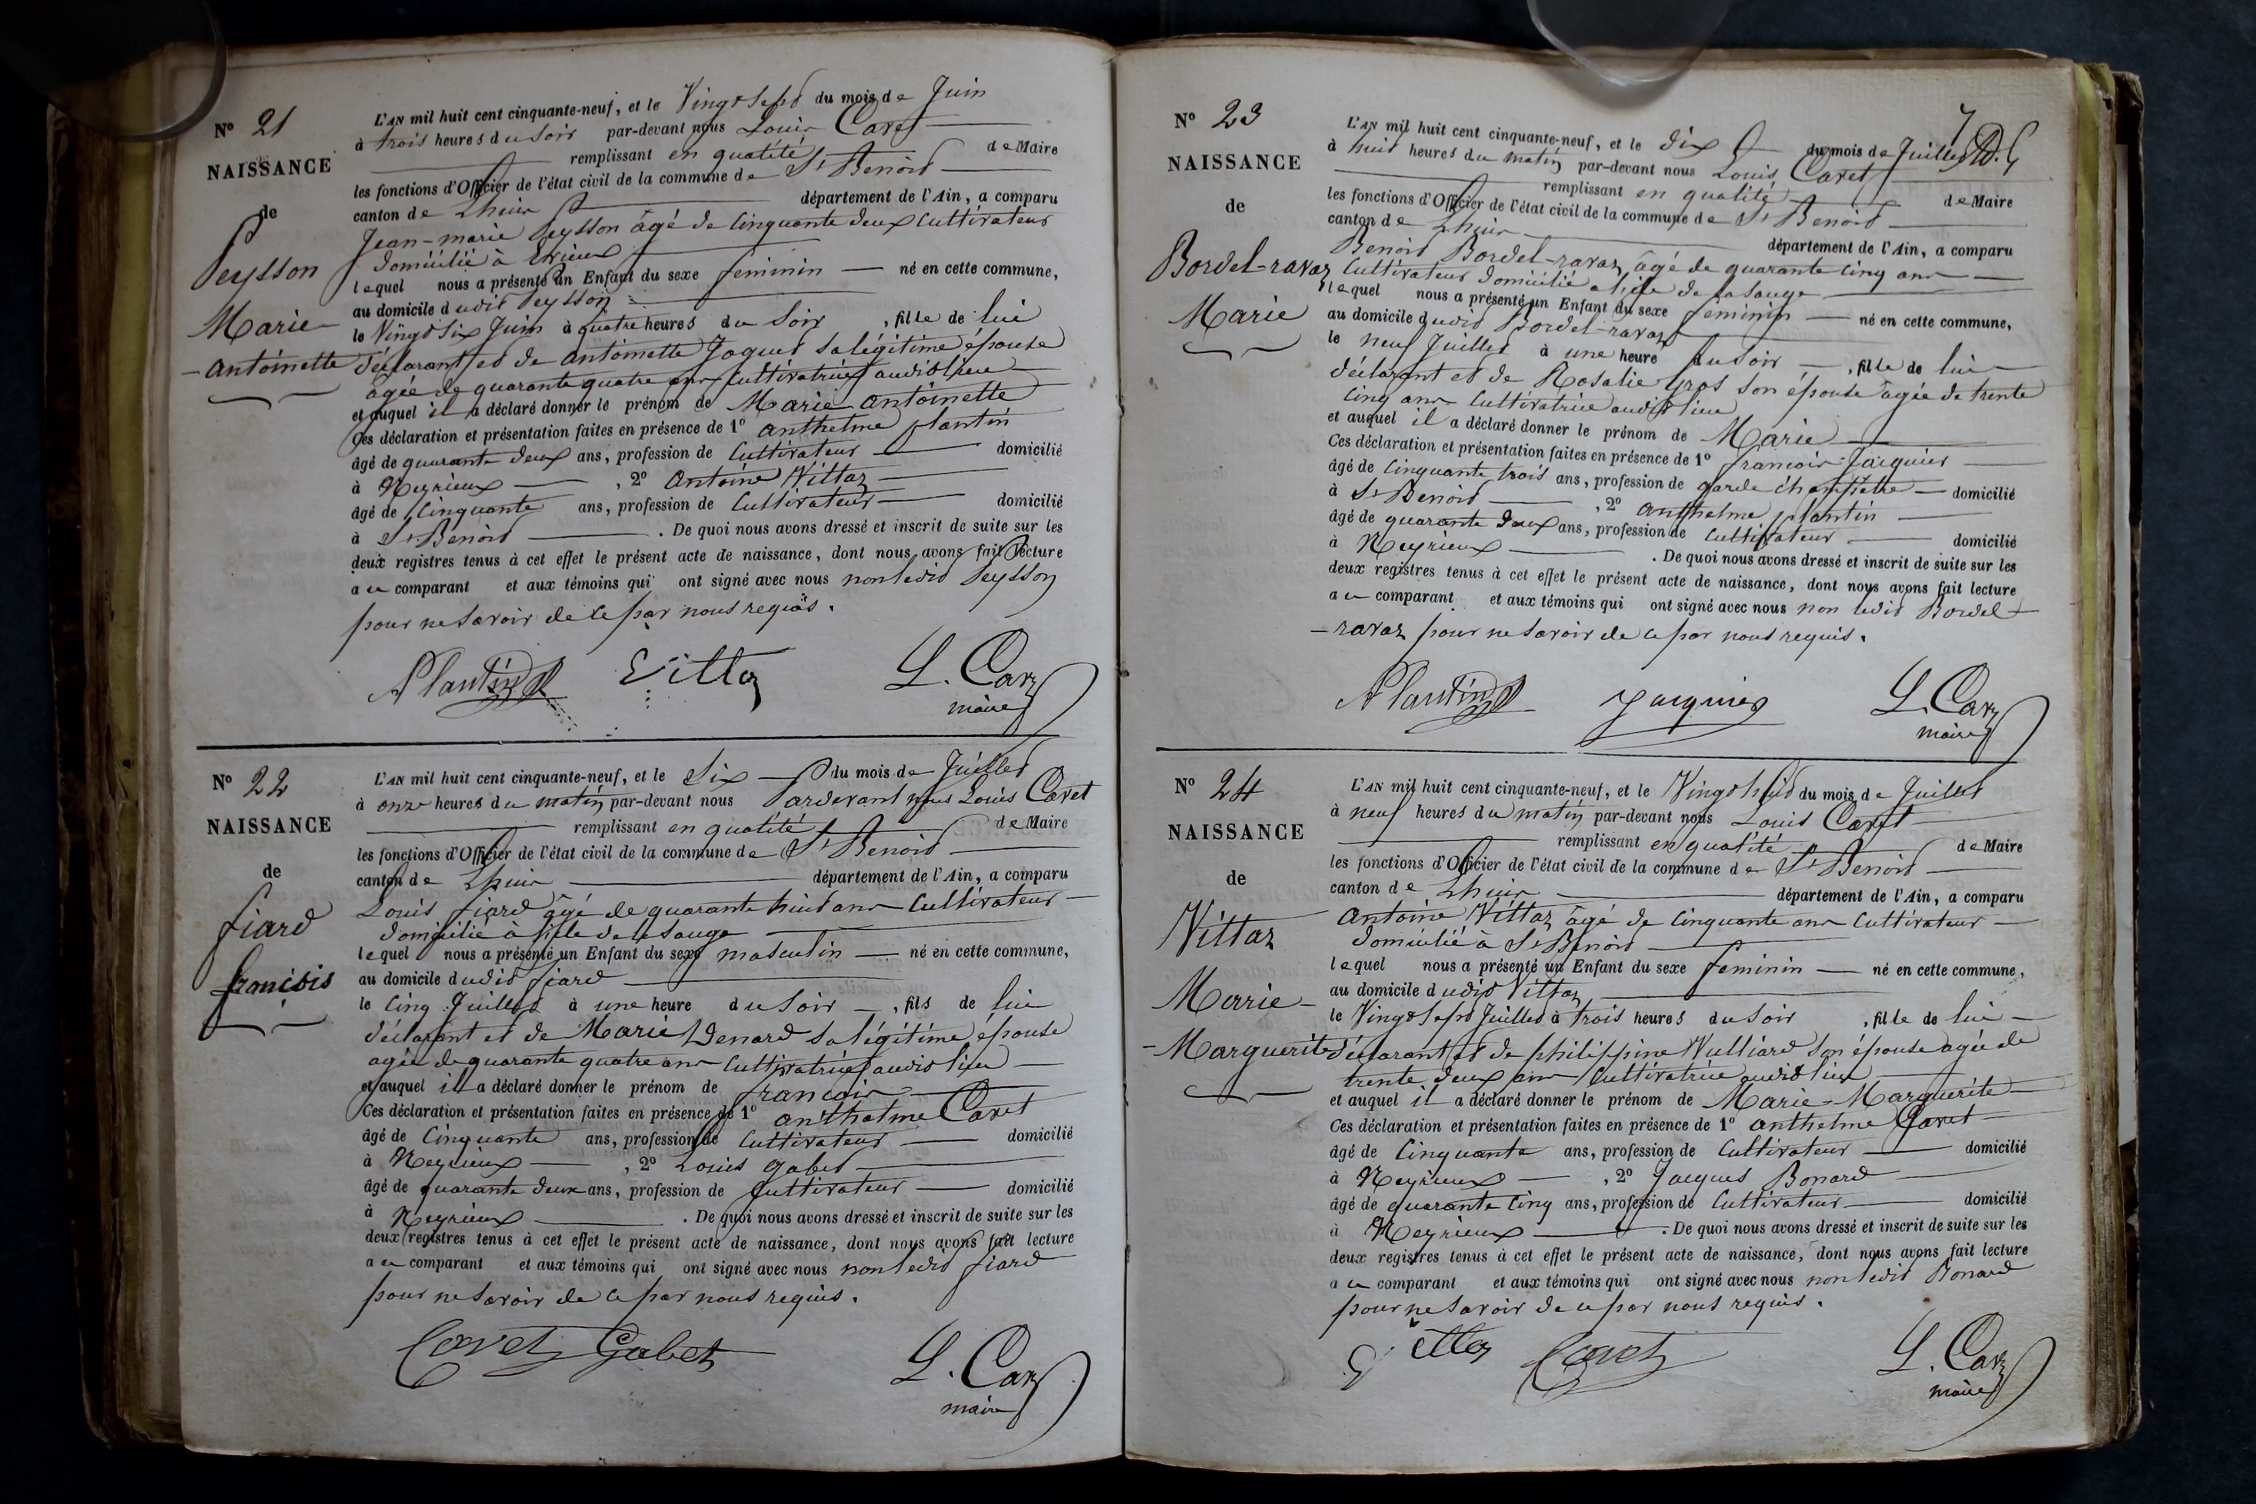 N° 21
NAISSANCE
de
Peysson
Marie
- Antoinette
L'AN mil huit cent cinquante-neuf, et le Vingt Sept du mois de Juin
à trois heures du Soir par-devant nous Louis Caret
remplissant en qualité de Maire
les fonctions d'Officier de l'état civil de la commune de St Benoit
canton de Lhuis département de l'Ain, a comparu
Jean-marie Peysson âgé de Cinquante deux Cultivateur
domicilié à
lequel nous a présenté un Enfant du sexe feminin né en cette commune,
au domicile dudit Peysson
le Vingt Six Juin à quatre heures du Soir , fille de lui
déclarant et de antoinette Joquet Sa légitime épouse
âgée de quarante quatre ans Cultivatrice audit lieu
et auquel il a déclaré donner le prénom de Marie antoinette
Ces déclaration et présentation faites en présence de 1° anthelme plantin
âgé de quarante deux ans, profession de Cultivateur domicilié
à Neyrieux , 2° antoine Vittoz
âgé de Cinquante ans, profession de Cultivateur domicilié
à St Benoit . De quoi nous avons dressé et inscrit de suite sur les
deux registres tenus à cet effet le présent acte de naissance, dont nous avons fait lecture
au comparant et aux témoins qui ont signé avec nous non ledit Peysson
pour ne Savoir de ce par nous requis.
APlantin Vittoz L. Caret
maire
N° 22
NAISSANCE
de
fiard
françois
L'AN mil huit cent cinquante-neuf, et le Six du mois de Juillet
à onze heures du matin par-devant nous Pardevant nous Louis Caret
remplissant en qualité de Maire
les fonctions d'Officier de l'état civil de la commune de St Benoit
canton de Lhuis département de l'Ain, a comparu
Louis fiard âgé de quarante huit ans Cultivateur
domicilié à l'ile de la Sauge
lequel nous a présenté un Enfant du sexe masculin né en cette commune,
au domicile dudit fiard
le Cinq Juillet à une heure du Soir , fils de lui
déclarant et de Marie Denard Sa légitime épouse
agée de quarante quatre ans Cultivatrice audit lieu
et auquel il a déclaré donner le prénom de francois
Ces déclaration et présentation faites en présence de 1° anthelme Caret
âgé de Cinquante ans, profession de Cultivateur domicilié
à Neyrieux , 2° Louis gabet
âgé de quarante deux ans, profession de Cultivateur domicilié
à Neyrieux . De quoi nous avons dressé et inscrit de suite sur les
deux registres tenus à cet effet le présent acte de naissance, dont nous avons fait lecture
au comparant et aux témoins qui ont signé avec nous non ledit fiard
pour ne Savoir de ce par nous requis.
Caret Gabet L. Caret
maire
7
N° 23
NAISSANCE
de
Bordel-ravaz
Marie
L'AN mil huit cent cinquante-neuf, et le dix du mois de Juillet
à huit heures du matin par-devant nous Louis Caret
remplissant en qualité de Maire
les fonctions d'Officier de l'état civil de la commune de St Benoit
canton de Lhuis département de l'Ain, a comparu
Benoit Bordel-ravaz âgé de quarante Cinq ans
Cultivateur domicilié à l'ile de la Sauge
lequel nous a présenté un Enfant du sexe feminin né en cette commune,
au domicile dudit Bordel-ravaz
le neuf Juillet à une heure du Soir , fille de lui
déclarant et de Rosalie gros Son épouse âgée de trente
Cinq ans Cultivatrice audit lieu
et auquel il a déclaré donner le prénom de Marie
Ces déclaration et présentation faites en présence de 1° francois Jacquier
âgé de Cinquante trois ans, profession de garde Champêtre domicilié
à St Benoit , 2° anthelme plantin
âgé de quarante deux ans, profession de Cultivateur domicilié
à Neyrieux . De quoi nous avons dressé et inscrit de suite sur les
deux registres tenus à cet effet le présent acte de naissance, dont nous avons fait lecture
au comparant et aux témoins qui ont signé avec nous non ledit Bordel
- ravaz pour ne Savoir de ce par nous requis.
APlantin Jacquier L. Caret
maire
N° 24
NAISSANCE
de
Vittoz
Marie
- Marguerite
L'AN mil huit cent cinquante-neuf, et le Vingt huit du mois de Juillet
à neuf heures du matin par-devant nous Louis Caret
remplissant en qualité de Maire
les fonctions d'Officier de l'état civil de la commune de St Benoit
canton de Lhuis département de l'Ain, a comparu
antoine Vittoz âgé de Cinquante ans Cultivateur
domicilié à St Benoit
lequel nous a présenté un Enfant du sexe feminin né en cette commune,
au domicile dudit Vittoz
le Vingt Sept Juillet à trois heures du Soir , fille de lui
déclarant et de philippine Vulliard Son épouse agée de
trente deux ans Cultivatrice audit lieu
et auquel il a déclaré donner le prénom de Marie-Marguerite
Ces déclaration et présentation faites en présence de 1° anthelme Caret
âgé de Cinquante ans, profession de Cultivateur domicilié
à Neyrieux , 2° Jacques Bonard
âgé de quarante Cinq ans, profession de Cultivateur domicilié
à Neyrieux . De quoi nous avons dressé et inscrit de suite sur les
deux registres tenus à cet effet le présent acte de naissance, dont nous avons fait lecture
au comparant et aux témoins qui ont signé avec nous non ledit Bonard
pour ne Savoir de ce par nous requis.
Vittoz Caret L. Caret
maire